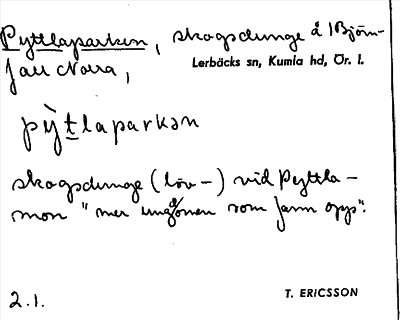 Pyttlaparken, skogsdunge å 1 Björn-
fall Norra,
Lerbäcks sn, Kumla hd, Ör. l.
pỳt̲laparkən
skogsdunge (löv-) vid Pyttla-
mon "mer som fann opp".
2.1.
T. ERICSSON